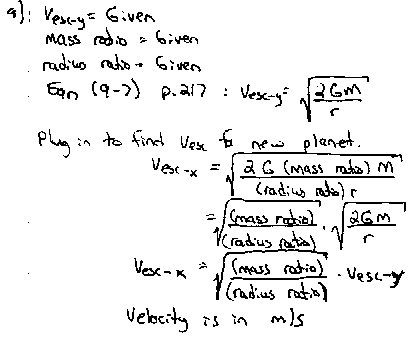 a): Vesc-y = Given
mass ratio = Given
radius ratio = Given
Eqn (9-7) p.217 : Vesc-y = √(2GM / r)
Plug in to find Vesc for new planet.
Vesc-x = √(2 G (mass ratio) M / (radius ratio) r)
= √((mass ratio) / (radius ratio)) · √(2GM / r)
Vesc-x = √((mass ratio) / (radius ratio)) · Vesc-y
Velocity is in m/s